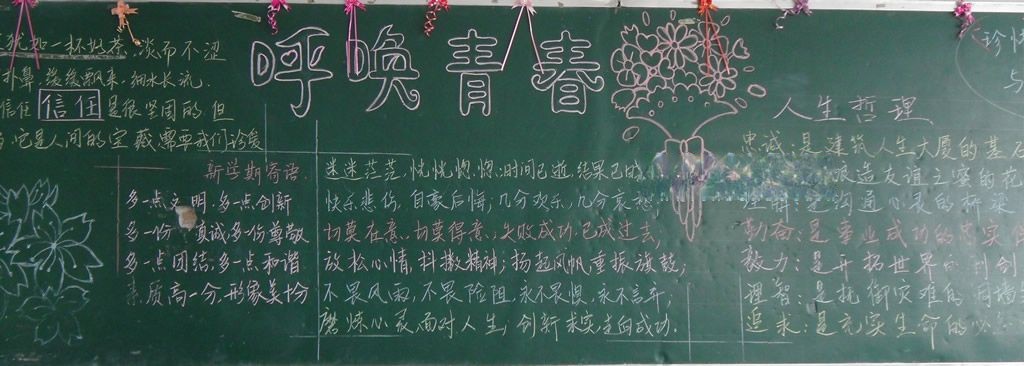 呼唤青春
犹如一杯好茶,淡而不涩
扑鼻,缓缓飘来,细水长流.
信任 信任 是很坚固的,但
它是人间的宝藏,需要我们珍爱
新学期寄语
多一点文明,多一点创新
多一份真诚,多一份尊敬
多一点团结,多一点和谐
素质高一分,形象美十分
迷迷茫茫,恍恍惚惚;时间已逝,结果已成
快乐悲伤,自豪后悔;几分欢乐,几分哀愁
切莫在意,切莫得意,失败成功,已成过去,
放松心情,抖擞精神;扬起风帆,重振旗鼓;
不畏风雨,不畏险阻,永不畏惧,永不言弃,
磨炼心灵,面对人生,创新求实,走向成功.
人生哲理
忠诚:是建筑人生大厦的基石
酿造友谊之蜜的花
理解:是沟通心灵的桥梁
勤奋:是事业成功的
毅力:是开拓世界的利剑
理智:是抵御灾难的
追求:是充实生命的
珍惜
与